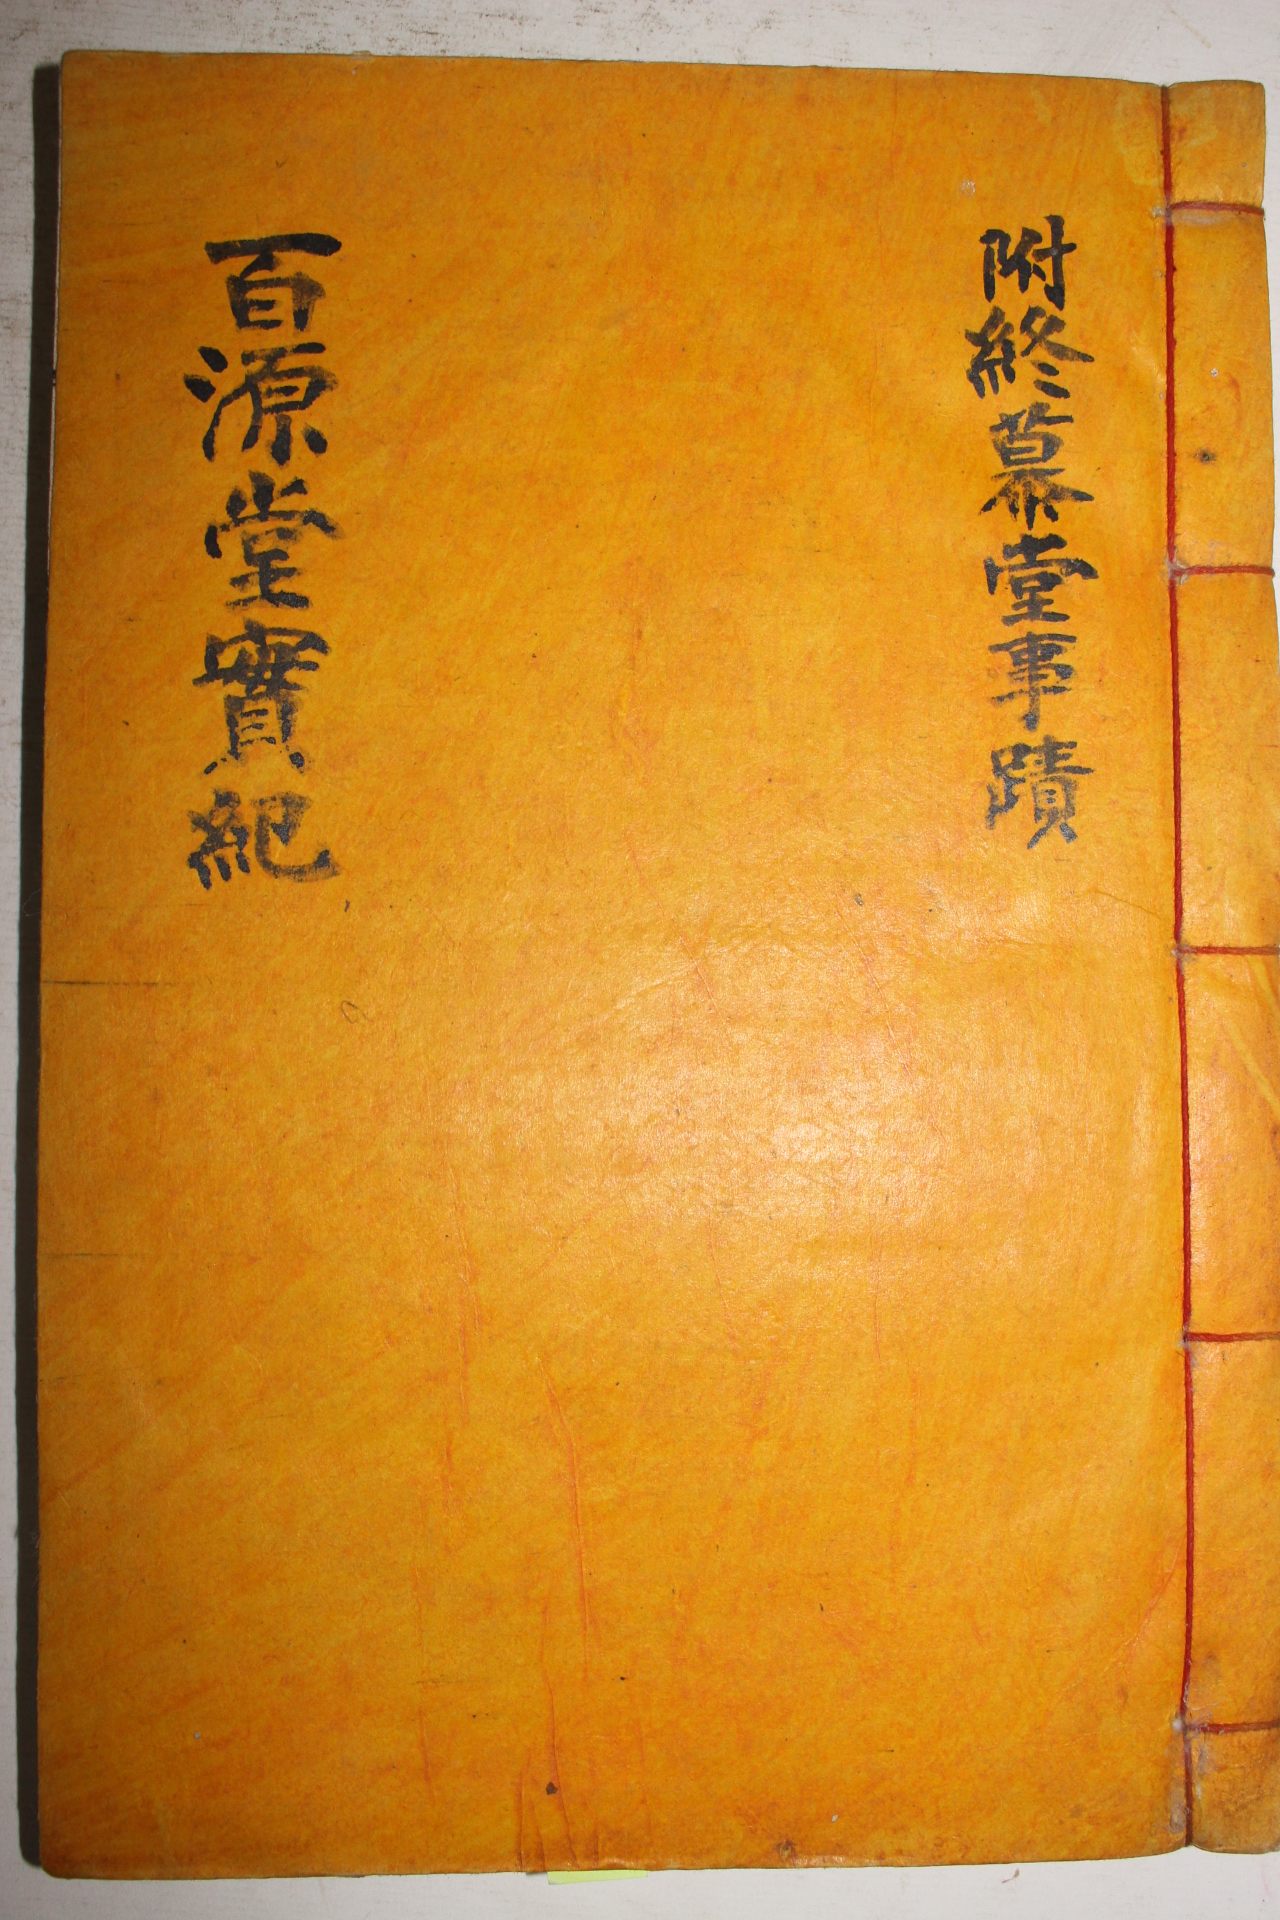 附終慕堂事蹟
百源堂實紀